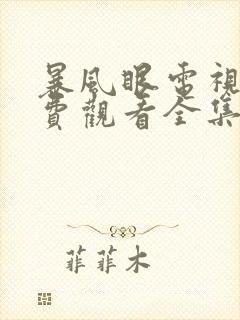 暴風眼電視
費觀看全集
菲菲木